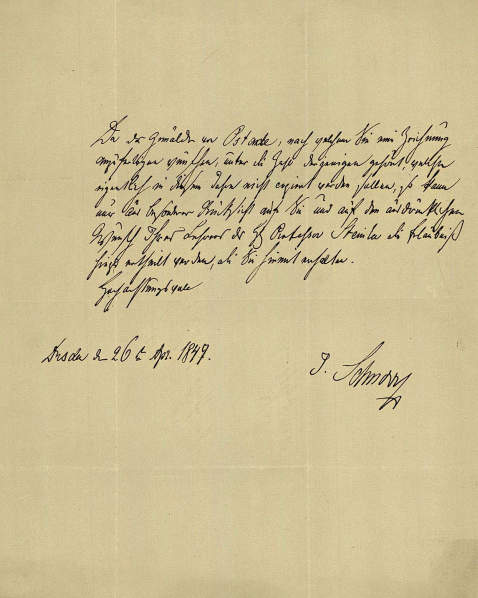 Da das Gemälde von Ostade, nach welchem Sie eine Zeichnung
anzufertigen wünschen, unter die Zahl derjenigen gehört, welche
eigentlich in diesem Jahre nicht copirt werden sollen, so kann
nur aus besonderer Rücksicht auf Sie und auf den ausdrücklichen
Wunsch Ihres Lehrers des H Professor Steinla die Erlaubniß
hiezu ertheilt werden, die Sie hiermit erhalten.
Hochachtungsvoll
Dresden den 26 t Apr. 1847.
J. Schnorr